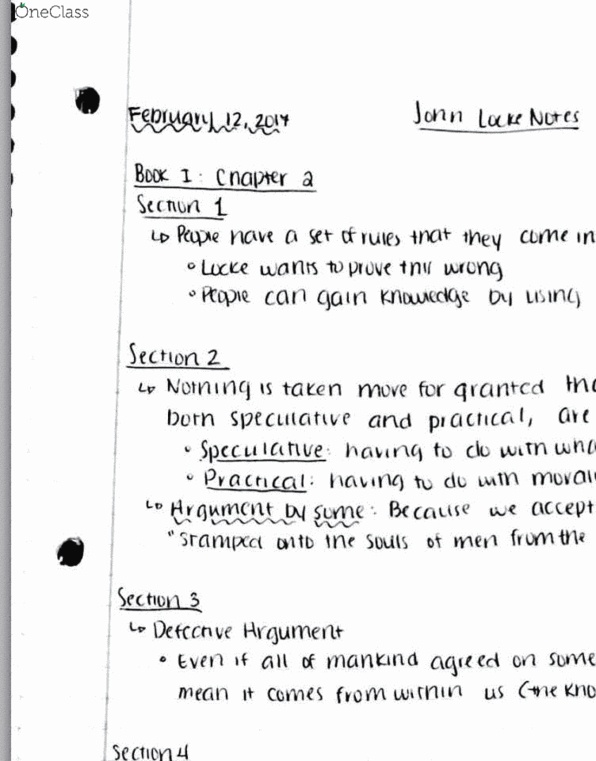 OneClass
February 12, 2014
John Locke Notes
Book I: Chapter 2
Section 1
↳ People have a set of rules that they come in
◦ Locke wants to prove this wrong
◦ People can gain knowledge by using
Section 2
↳ Nothing is taken move for granted tha
born speculative and practical, are
• Speculative: having to do with wha
• Practical: having to do with morali
↳ Argument by some: Because we accept
"stamped onto the souls of men from the
Section 3
↳ Defective Argument
• Even if all of mankind agreed on some
mean it comes from within us (the kno
Section 4